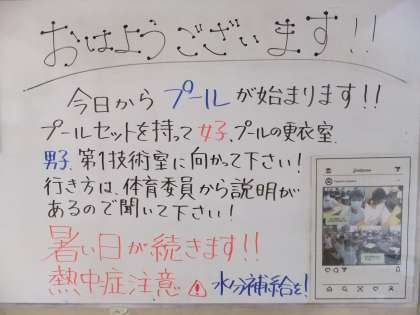 おはようございます!!
今日からプールが始まります!!
プールセットを持って女子、プールの更衣室
男子、第1技術室に向かって下さい!
行き方は、体育委員から説明が
あるので聞いて下さい!
暑い日が続きます!!
熱中症注意 水分補給を!